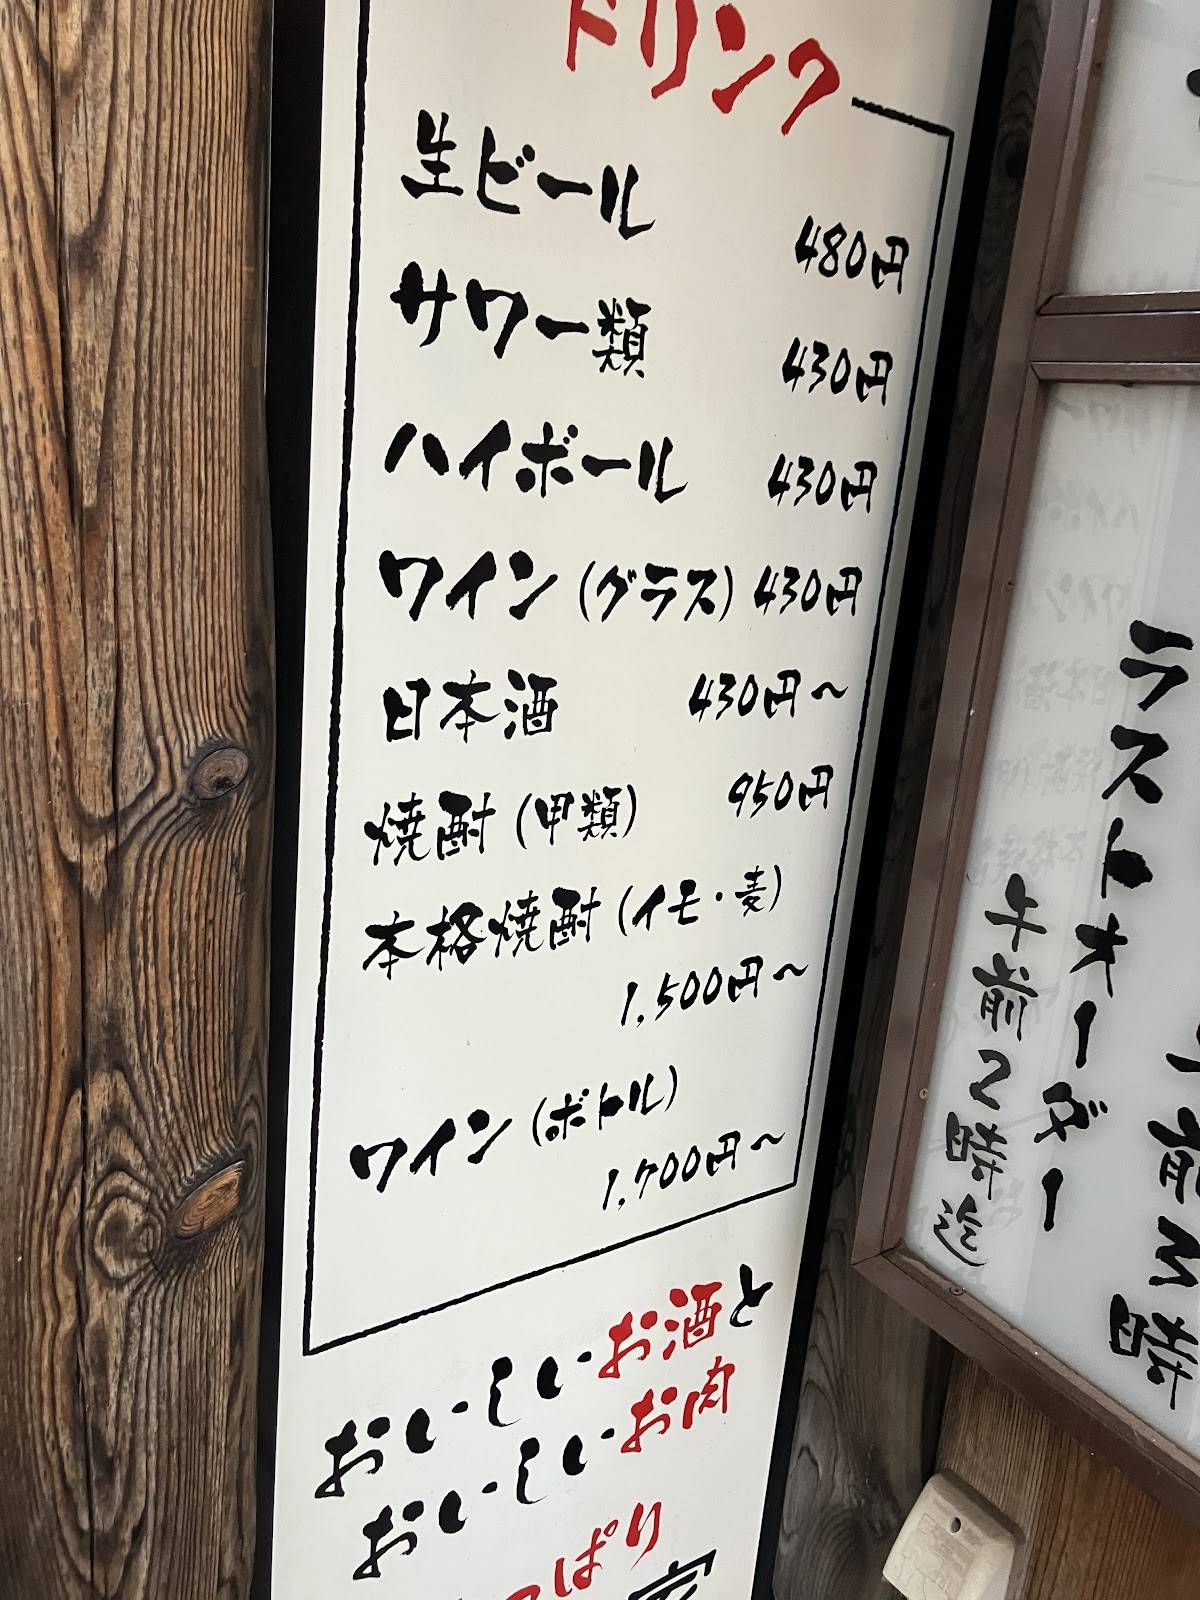 ドリンク
生ビール 480円
サワー類 430円
ハイボール 430円
ワイン(グラス) 430円
日本酒 430円~
焼酎(甲類) 950円
本格焼酎(イモ・麦)
1,500円~
ワイン(ボトル)
1,700円~
おいしいお酒と
おいしいお肉
ぱり
ラストオーダー
午前2時迄
前
時